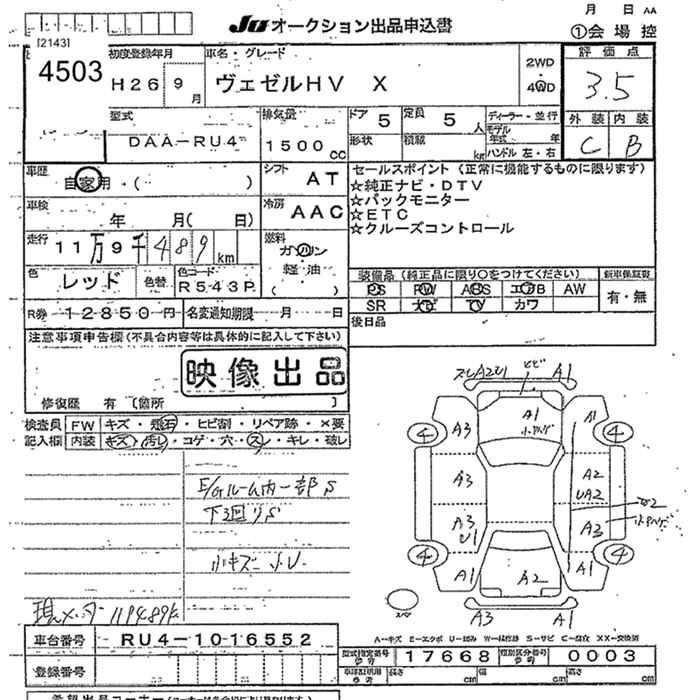 月 日 AA
JU オークション出品申込書
①会場控
[2143]
4503
初度登録年月
H26 9月
車名・グレード
ヴェゼルHV X
2WD
4WD
評価点
3.5
型式
DAA-RU4
排気量
1500cc
ドア 5
定員 5人
形状
積載 kg
ディーラー・並行
モデル年式 年
ハンドル 左・右
外装 内装
C B
車歴
自家用・( )
シフト AT
セールスポイント (正常に機能するものに限ります)
☆純正ナビ・DTV
☆バックモニター
☆ETC
☆クルーズコントロール
車検
年 月( 日)
冷房 AAC
走行
11万9千489km
燃料
ガソリン
軽油
( )
色 レッド 色替
色コード
R543P
装備品 (純正品に限り○をつけてください)
新車保証書
PS PW ABS エアB AW
有・無
SR ナビ TV カワ
R券 12850円
名変通知期限 月 日
後日品
注意事項申告欄(不具合内容等は具体的に記入して下さい)
映像出品
修復歴 有 (箇所 )
検査員 FW キズ・飛石・ヒビ割・リペア跡・×要
記入欄 内装 キズ・汚れ・コゲ・穴・スレ・キレ・破レ
E/Gルーム内一部S
下回りS
小キズ 小U
現メーター 119489k
スレA2U1 ヒビ A1
A3 A1 A1
4 4
A3 A2
UA2
A3 A3
U1
4 4
A1 A2 A1
スペア
A3 A1
A-キズ E-エクボ U-凹み W-補修跡 S-サビ C-腐食 XX-交換済
車台番号 RU4-1016552
型式指定番号 参考 17668
類別区分番号 参考 0003
登録番号
長さ cm 幅 cm 高さ cm